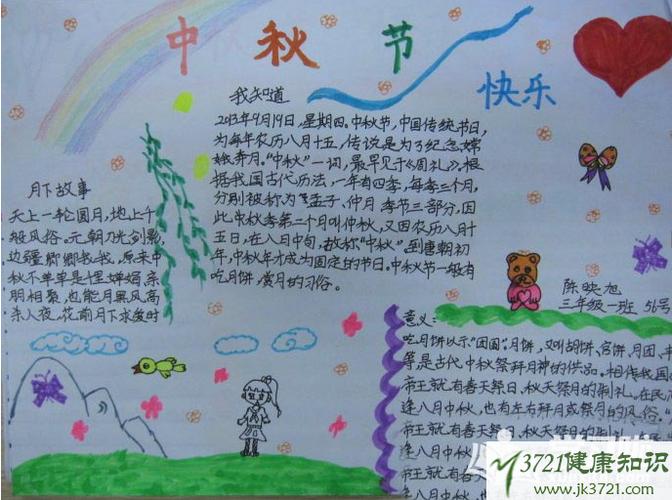 中秋节
快乐
我知道
2013年9月19日,星期四。中秋节,中国传统节日,
为每年农历八月十五,传说是为了纪念嫦
娥奔月。“中秋”一词,最早见于《周礼》。根
据我国古代历法,一年有四季,每季三个月,
分别被称为孟子、仲月 季节三部分,因
此中秋季第二个月叫仲秋,又因农历八月十
五日,在八月中旬,故称“中秋”。到唐朝初
年,中秋年才成为固定的节日。中秋节一般有
吃月饼,赏月的习俗。
月下故事
天上一轮圆月,地上千
般风俗。元朝刀光剑影,
边疆卿卿我我。原来中
秋不单单是惺婵娟亲
朋相聚,也能月黑风高
杀人夜,花前月下水
陈映旭
三年级一班 56号
意义:
吃月饼以示“团圆”月饼,又叫胡饼、宫饼、月团、
等是古代中秋祭拜月神的供品。相传我国
帝王就有春天祭日,秋天祭月的制礼。在民
逢八月中秋,也有左右拜月或祭月的风俗。
帝王就有春天祭日,秋天祭月的制礼。
逢八月中秋
帝王就有春
八月中秋,也
3721健康知识
www.jk3721.com